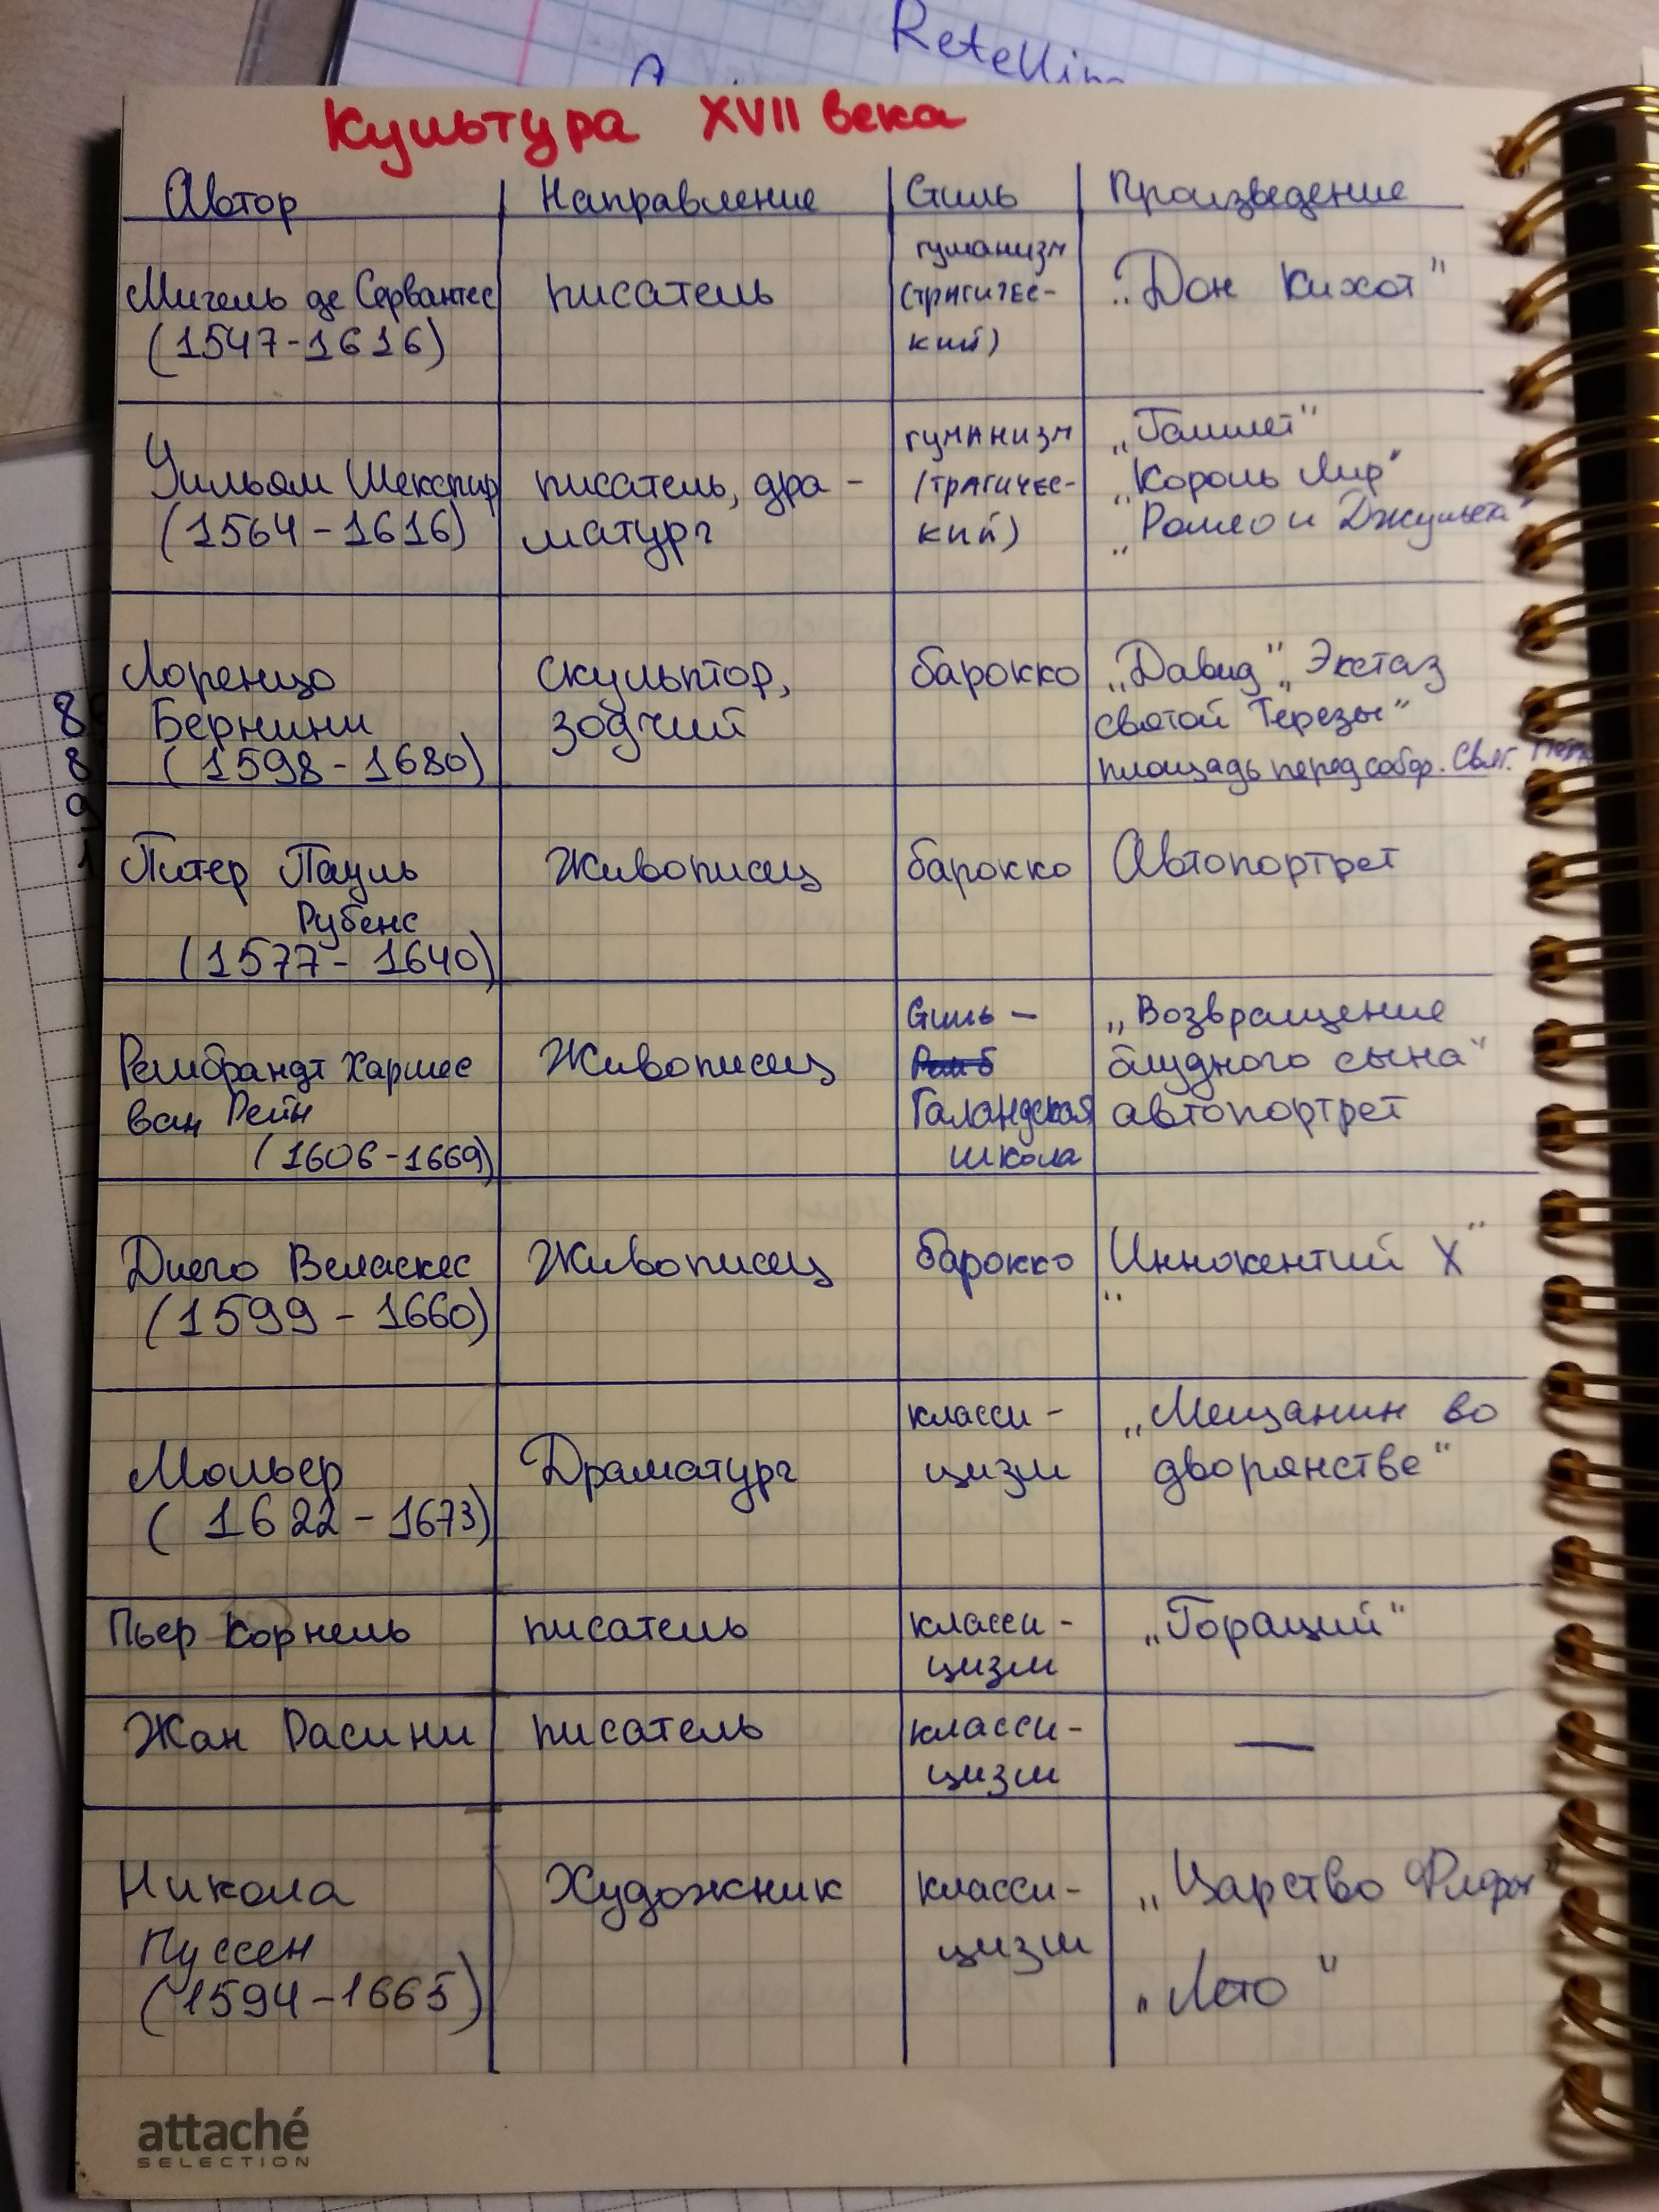 Retelling
Культура XVII века
Автор Направление Стиль Произведение
гуманизм
Мигель де Сервантес писатель (трагичес- „Дон Кихот"
(1547-1616) кий)
гуманизм „Гамлет"
Уильям Шекспир писатель, дра- (трагичес- „Король Лир"
(1564-1616) матург кий) „Ромео и Джульета"
Лоренцо Скульптор, барокко „Давид" „Экстаз
Бернини зодчий святой Терезы"
(1598-1680) площадь перед собор. Свят. Петра
Питер Пауль Живописец барокко Автопортрет
Рубенс
(1577-1640)
Стиль - „Возвращение
Рембрандт Хармес Живописец блудного сына"
ван Рейн Галандская автопортрет
(1606-1669) школа
Диего Веласкес Живописец барокко „Иннокентий X"
(1599-1660)
класси- „Мещанин во
Мольер Драматург цизм дворянстве"
(1622-1673)
Пьер Корнель писатель класси- „Гораций"
цизм
Жан Расини писатель класси- —
цизм
Никола Художник класси- „Царство Флоры"
Пуссен цизм
(1594-1665) „Лето"
attaché
SELECTION